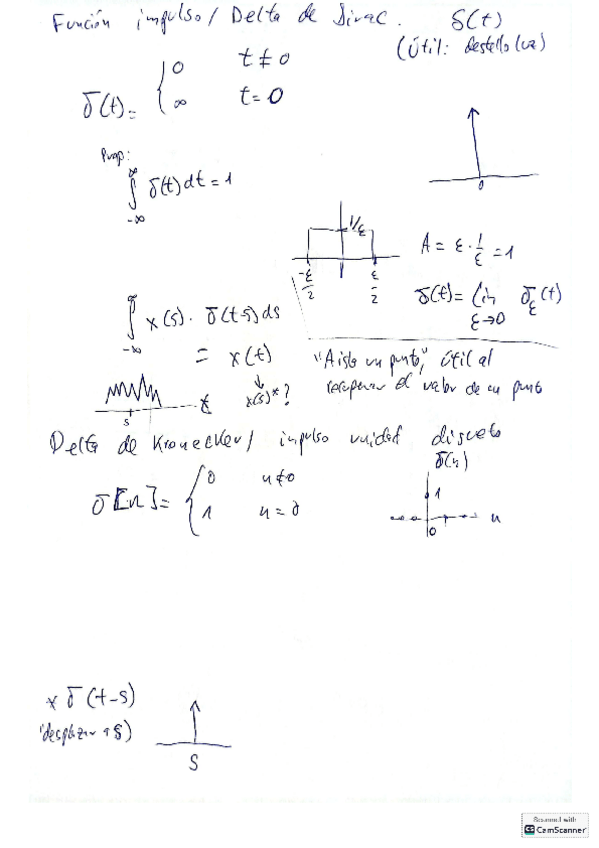 Función impulso / Delta de Dirac. δ(t)
(Útil: destello luz)
δ(t) = { 0 t ≠ 0
∞ t = 0
0
Prop:
∫_{-∞}^{∞} δ(t) dt = 1
1/ε
-ε/2 ε/2
A = ε · 1/ε = 1
δ(t) = lim_{ε→0} δ_ε(t)
∫_{-∞}^{∞} x(s) · δ(t-s) ds
= x(t)
x(s)*?
"Aisla un punto", útil al
recuperar el valor de un punto
s t
Delta de Kronecker / impulso unidad discreto
δ[n] = { 0 n ≠ 0
1 n = 0
δ(n)
1
0 n
* δ(t-s)
(desplazar a s)
s
Scanned with
CS CamScanner